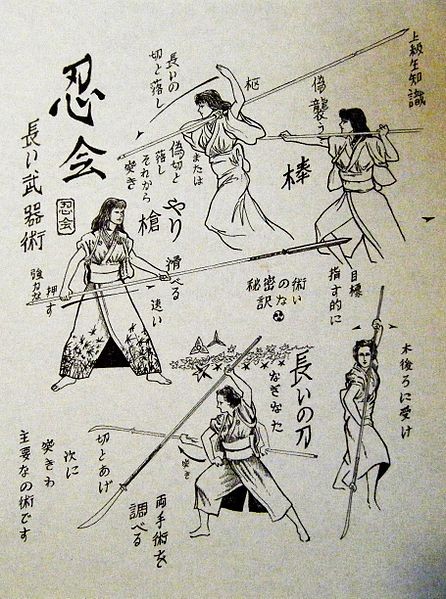 上級生知識
偽襲う
棒
枢
長いの
切と落し
または
偽切と
落し
それから
突き
忍会
長い武器術
忍会
やり
槍
滑べる
速い
押す
強力な
目標
指す的に
術い
のな
密訳
秘
木後ろに受け
長いの刀
なぎなた
突き
両手術を
調べる
切とあげ
次に
突きわ
主要なの術です